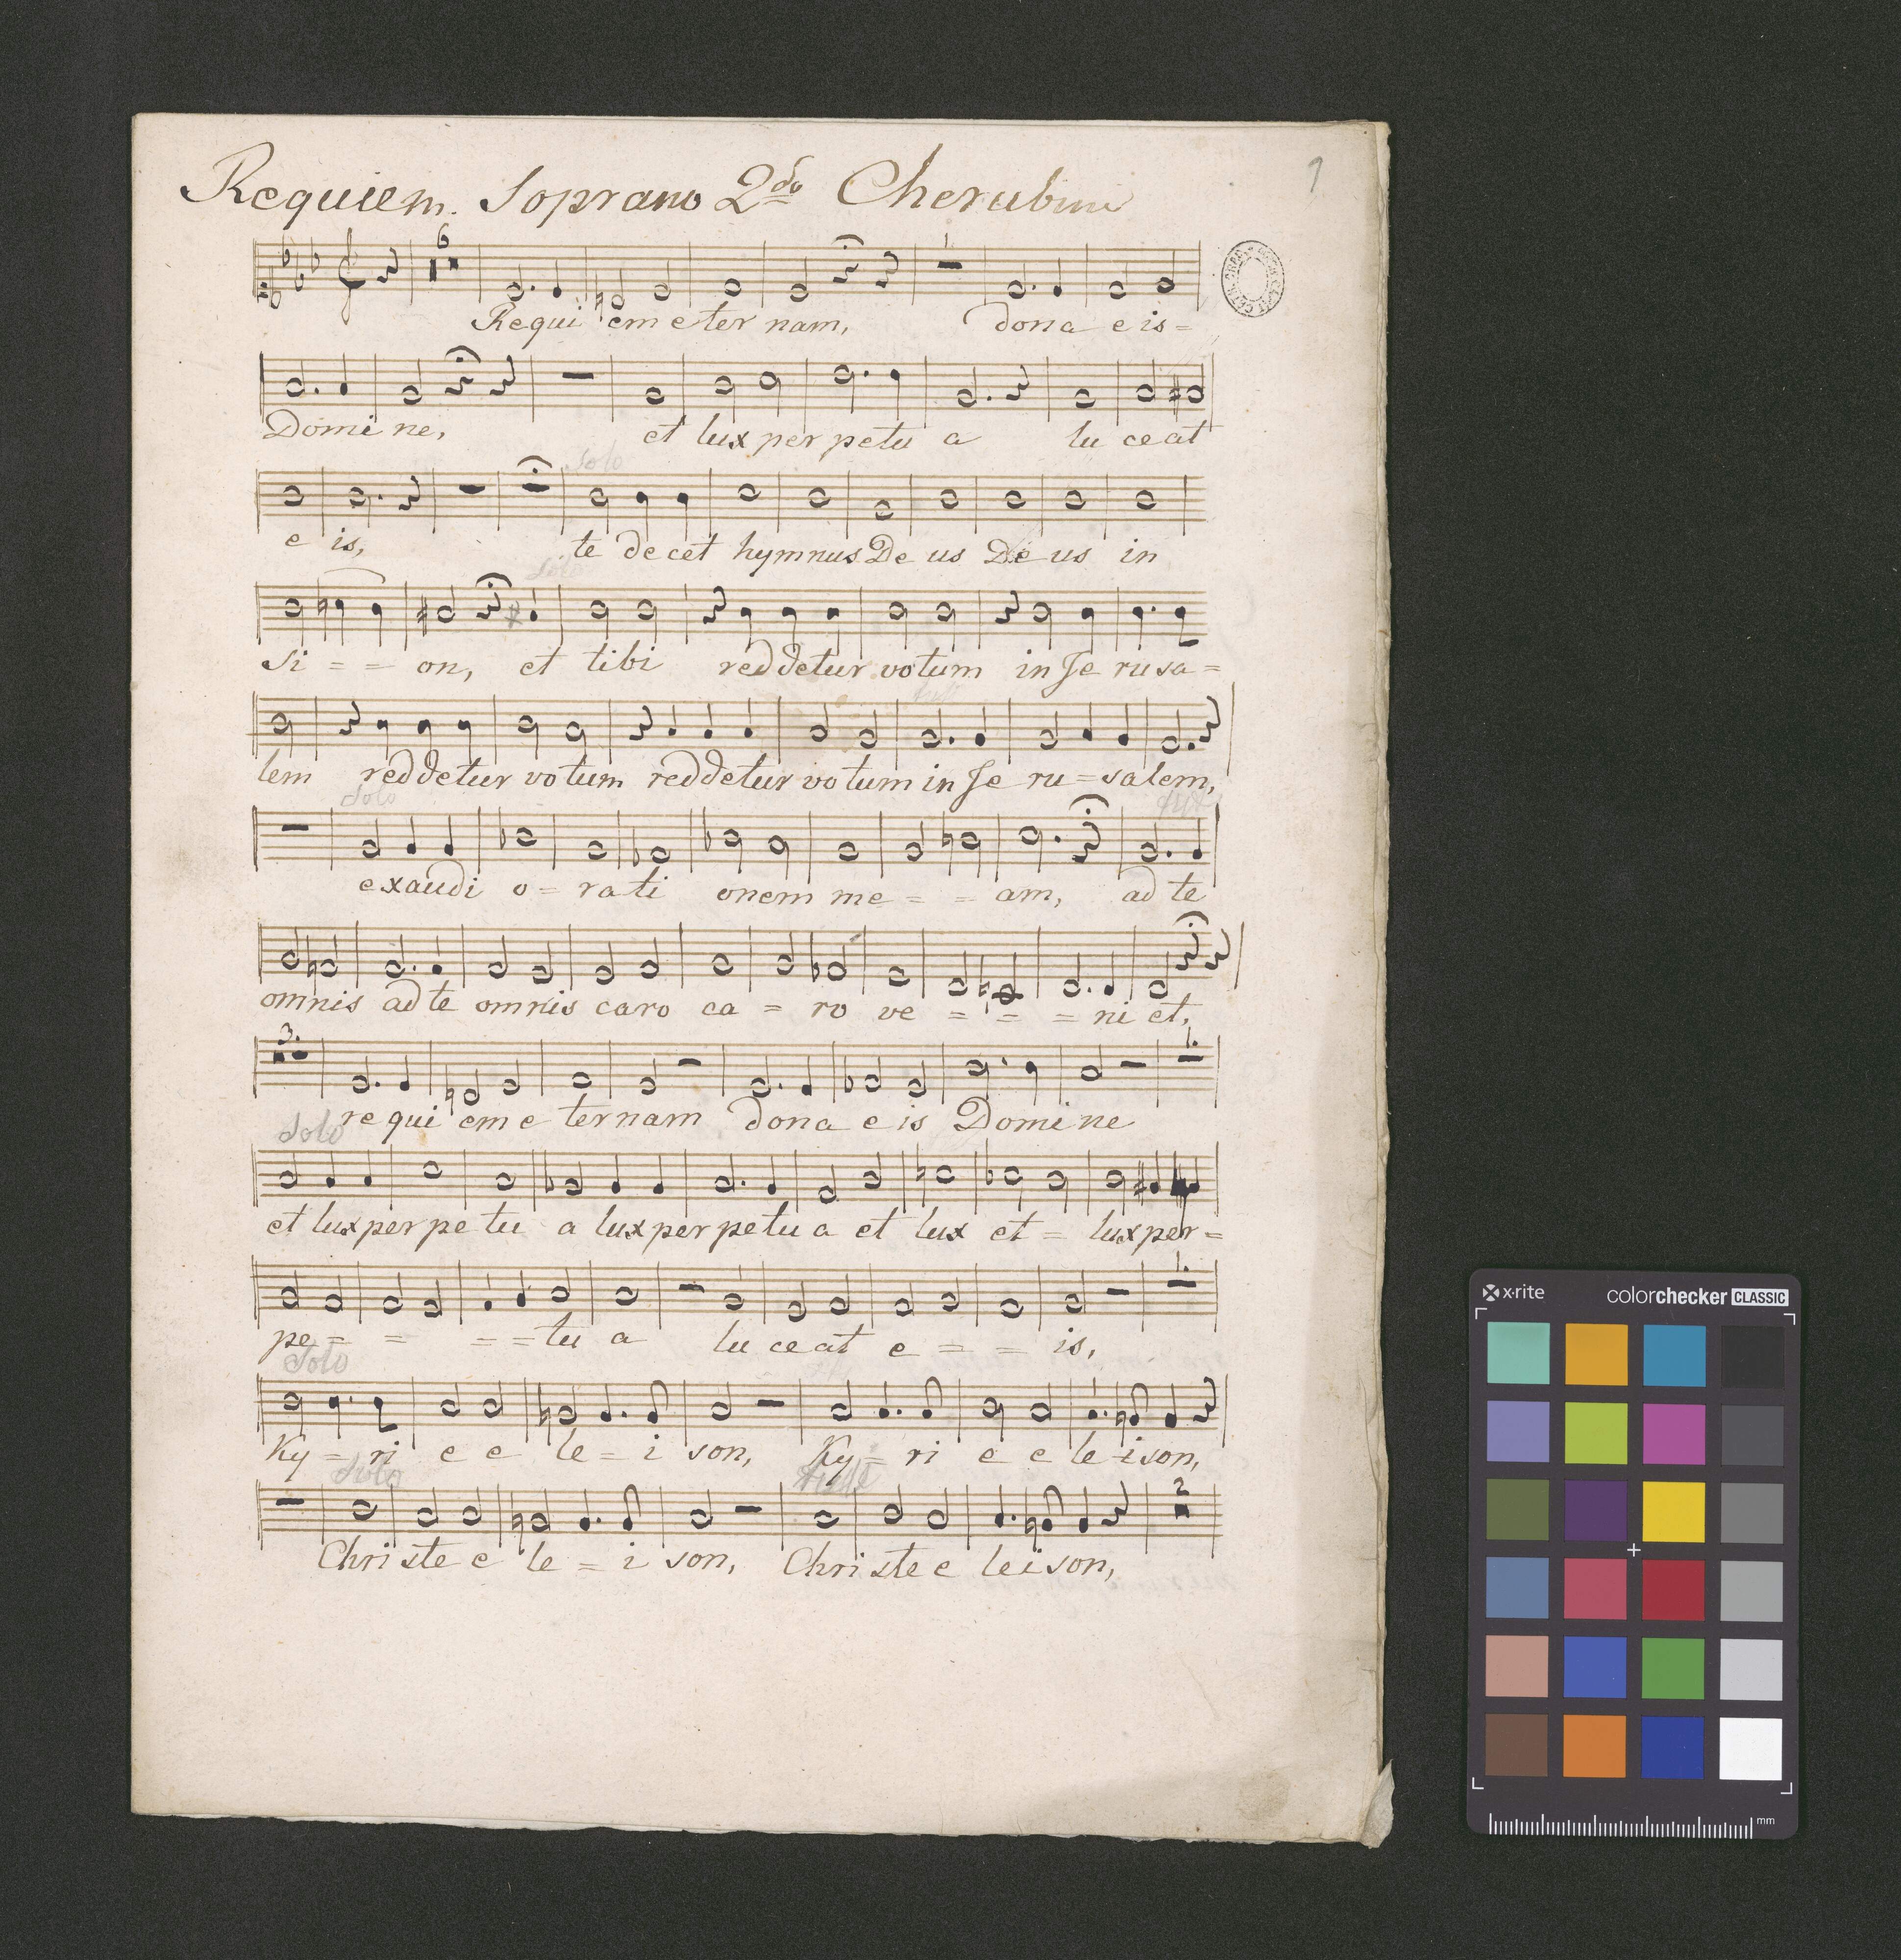 Requiem. Soprano 2do Cherubini
1
6
Requi em eter nam, dona e is=
Domi ne, et lux per petu a lu ceat
Solo
e is, te decet hymnus De us De us in
Solo
Si = = on, et tibi reddetur votum in Je rusa=
lem reddetur votum reddetur votum in Je ru=salem,
Solo
exaudi o = ra ti onem me = = am, ad te
omnis ad te omnis caro ca = ro ve = = = ni et,
3.
requi em e ternam dona e is Domine
Solo
et lux per pe tu a lux per petu a et lux et = lux per=
pe = = = = tu a lu ceat e = = is,
Solo
Ky = ri e e le = i son, Ky = ri e e le = ison,
Solo
2
Christe e le = i son, Christe e leison,
x·rite colorchecker CLASSIC
mm